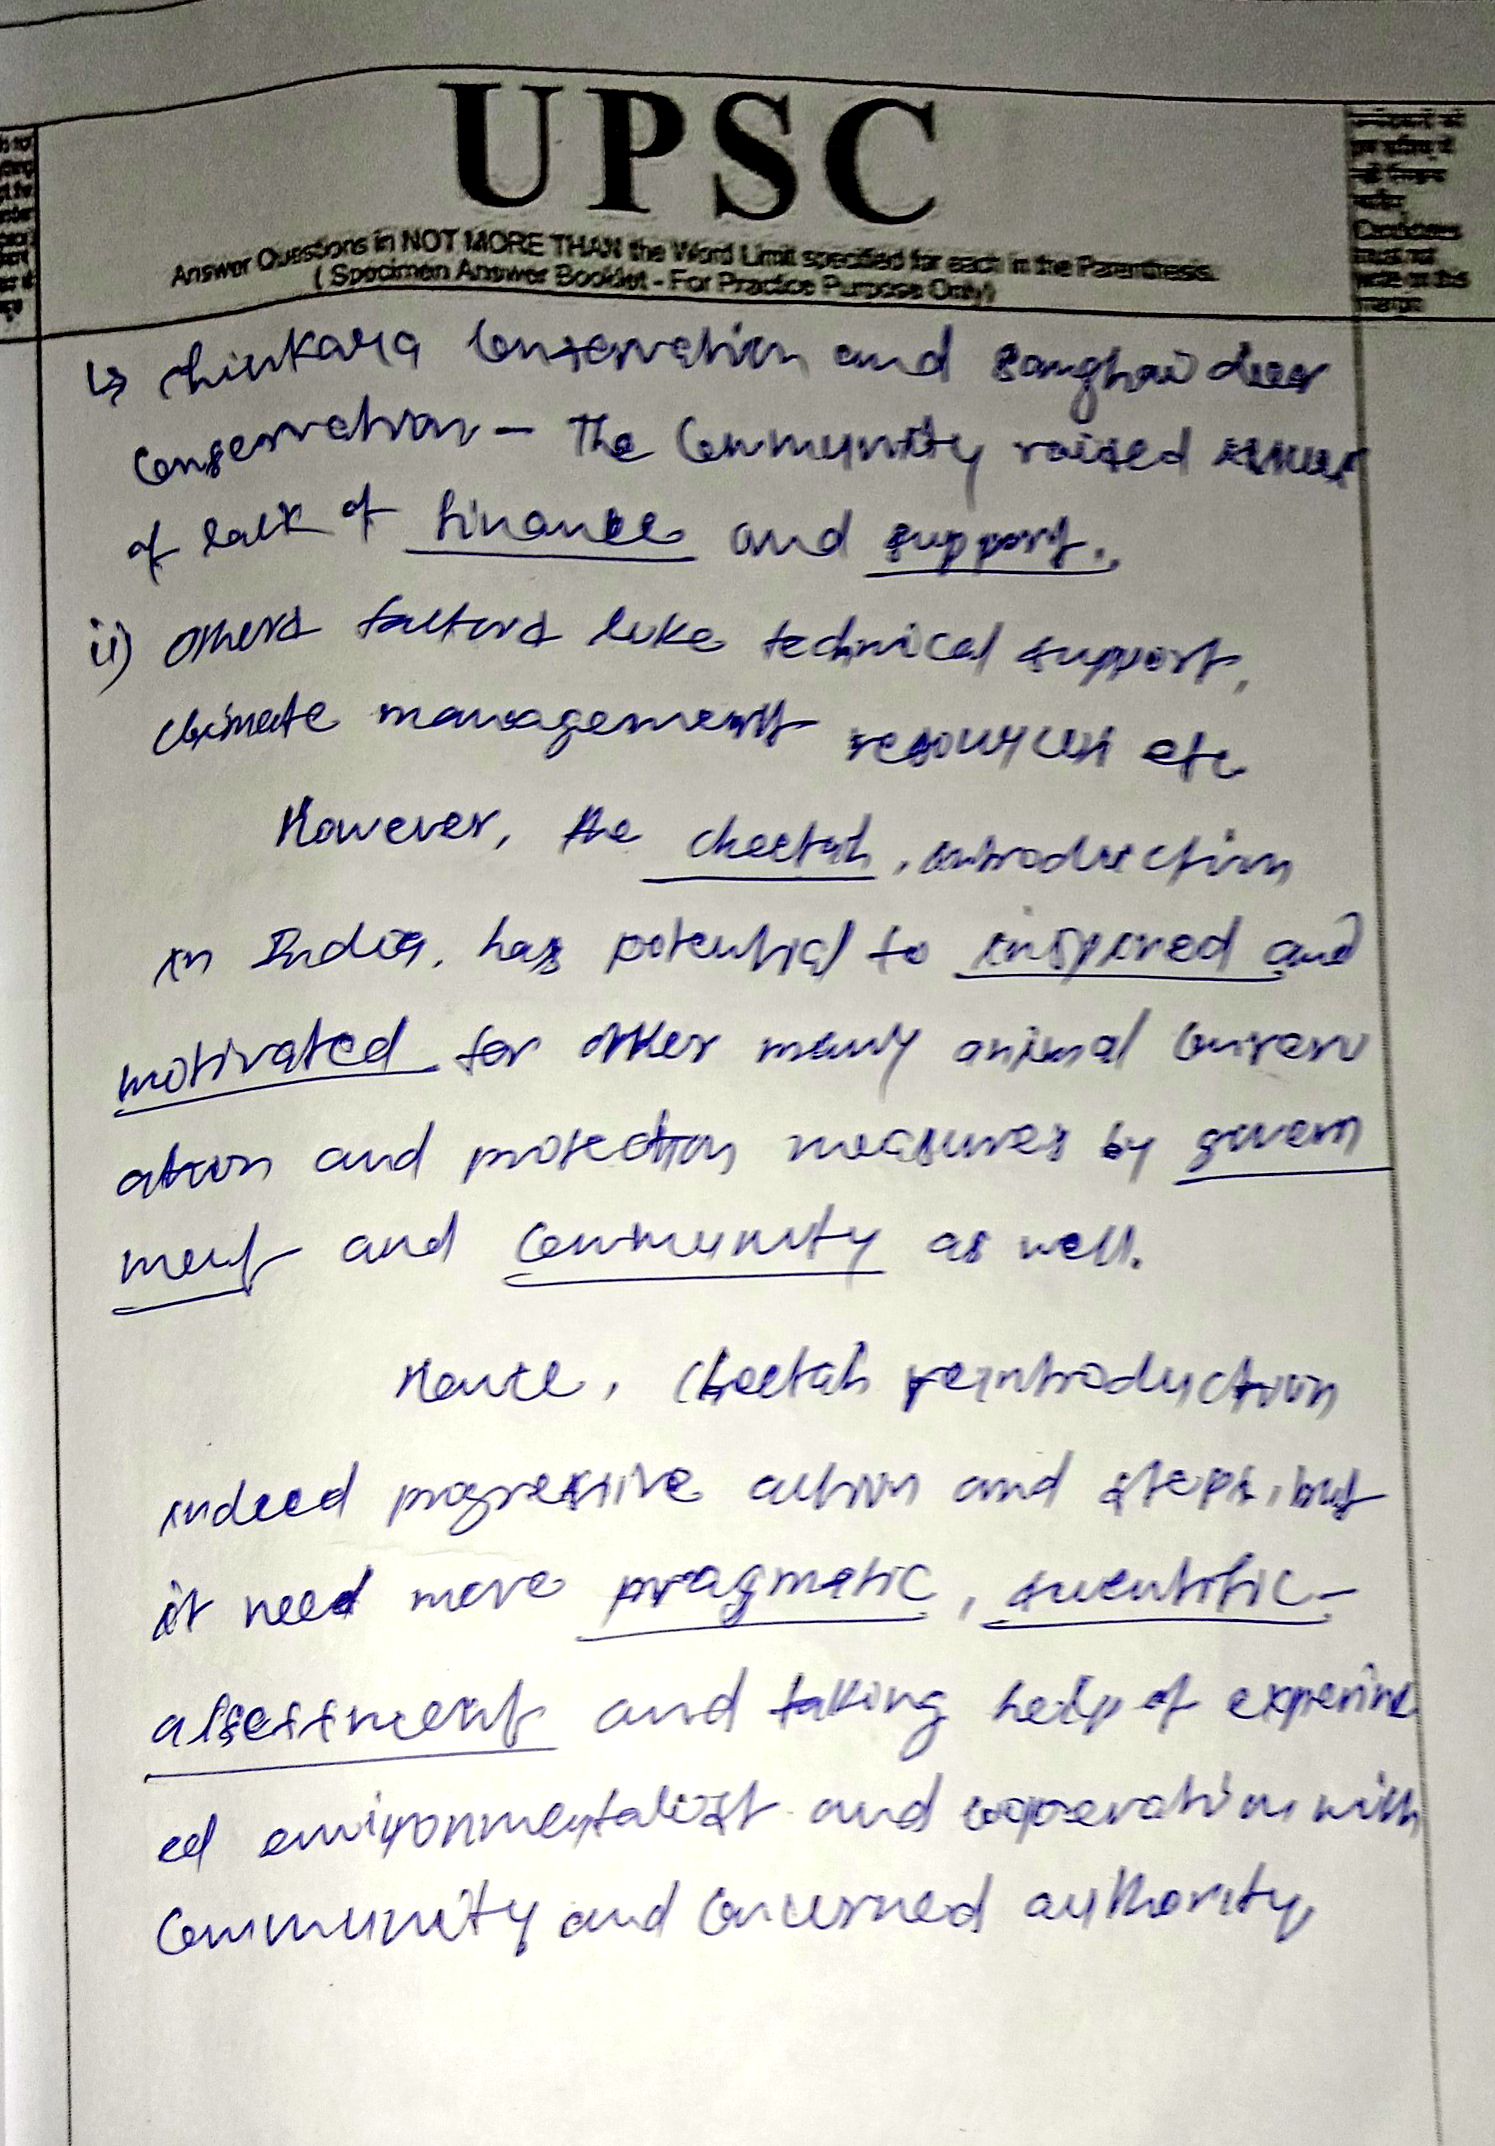 UPSC
Answer Questions in NOT MORE THAN the Word Limit specified for each in the Parenthesis.
( Specimen Answer Booklet - For Practice Purpose Only)
↳ chinkara conservation and sanghai deer
conservation - The community raised issues
of lack of finance and support.
ii) others factors like technical support,
climate management resources etc
However, the cheetah, introduction
in India, has potential to inspired and
motivated for other many animal conserv
ation and protection measures by govern
ment and community as well.
Hence, Cheetah reintroduction
indeed progressive action and steps, but
it need more pragmatic, scientific
assessment and taking help of experienc
ed environmentalist and cooperation with
community and concerned authority,